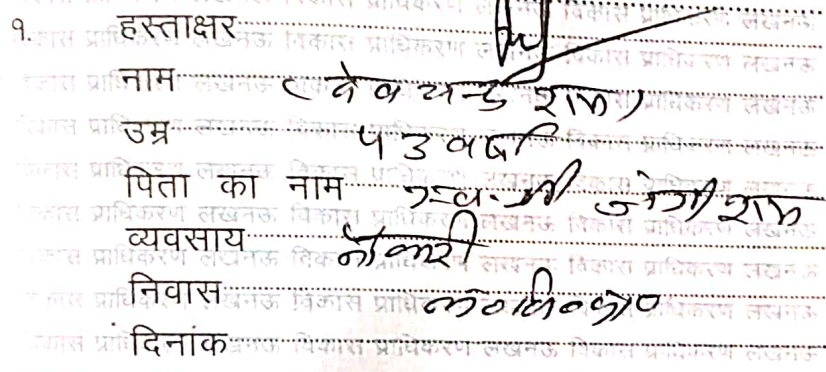 १. हस्ताक्षर
नाम (देवचन्द्र राम)
उम्र ५३ वर्ष
पिता का नाम स्व. श्री जोगी राम
व्यवसाय नौकरी
निवास ल०वि०प्रा०
दिनांक